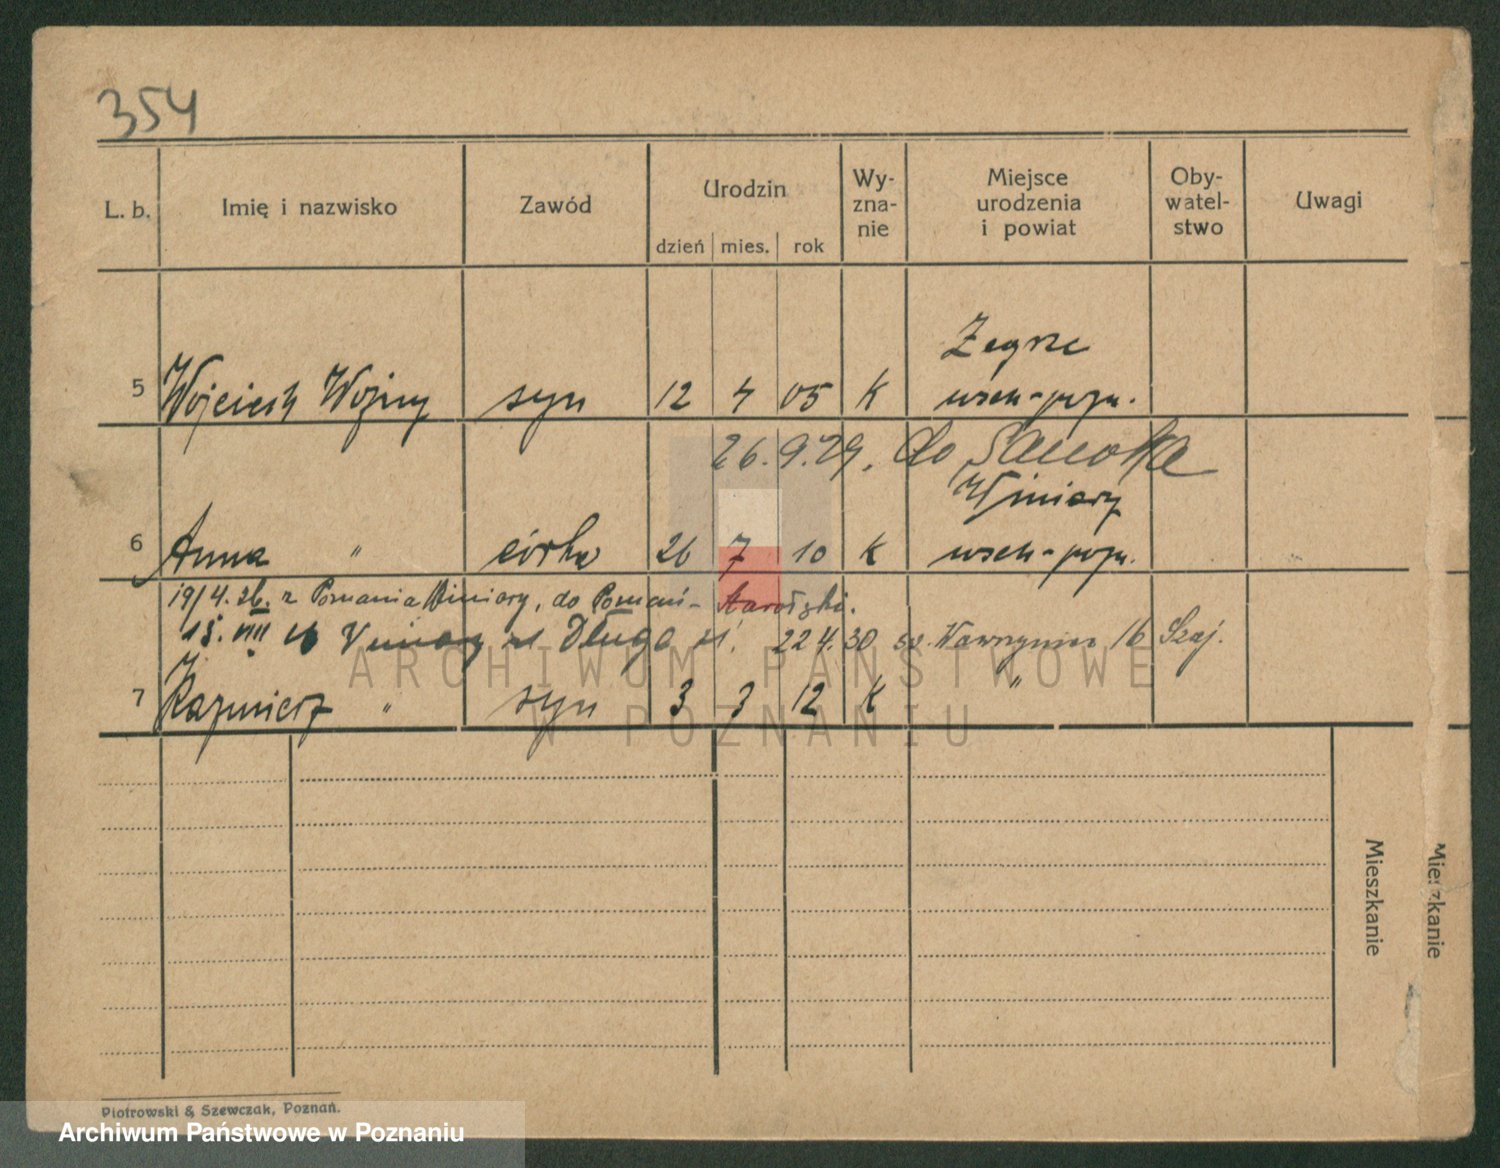 354
L. b. Imię i nazwisko Zawód Urodzin dzień mies. rok Wy-zna-nie Miejsce urodzenia i powiat Oby-watel-stwo Uwagi
Zegrze
5 Wojciech Woźny syn 12 4 05 K wsch-pozn.
26.9.29. do Sanoka
Winiary
6 Anna " córka 26 7 10 K wsch-pozn.
19/4.26. z Poznania Winiary, do Poznań-
15. VIII 26 Winiary ul Długa 22 4.30 św. Wawrzyniec 16 Szaj.
7 Kazimierz " syn 3 3 12 K "
Mieszkanie
Mieszkanie
Piotrowski & Szewczak, Poznań.
ARCHIWUM PAŃSTWOWE
W POZNANIU
Archiwum Państwowe w Poznaniu